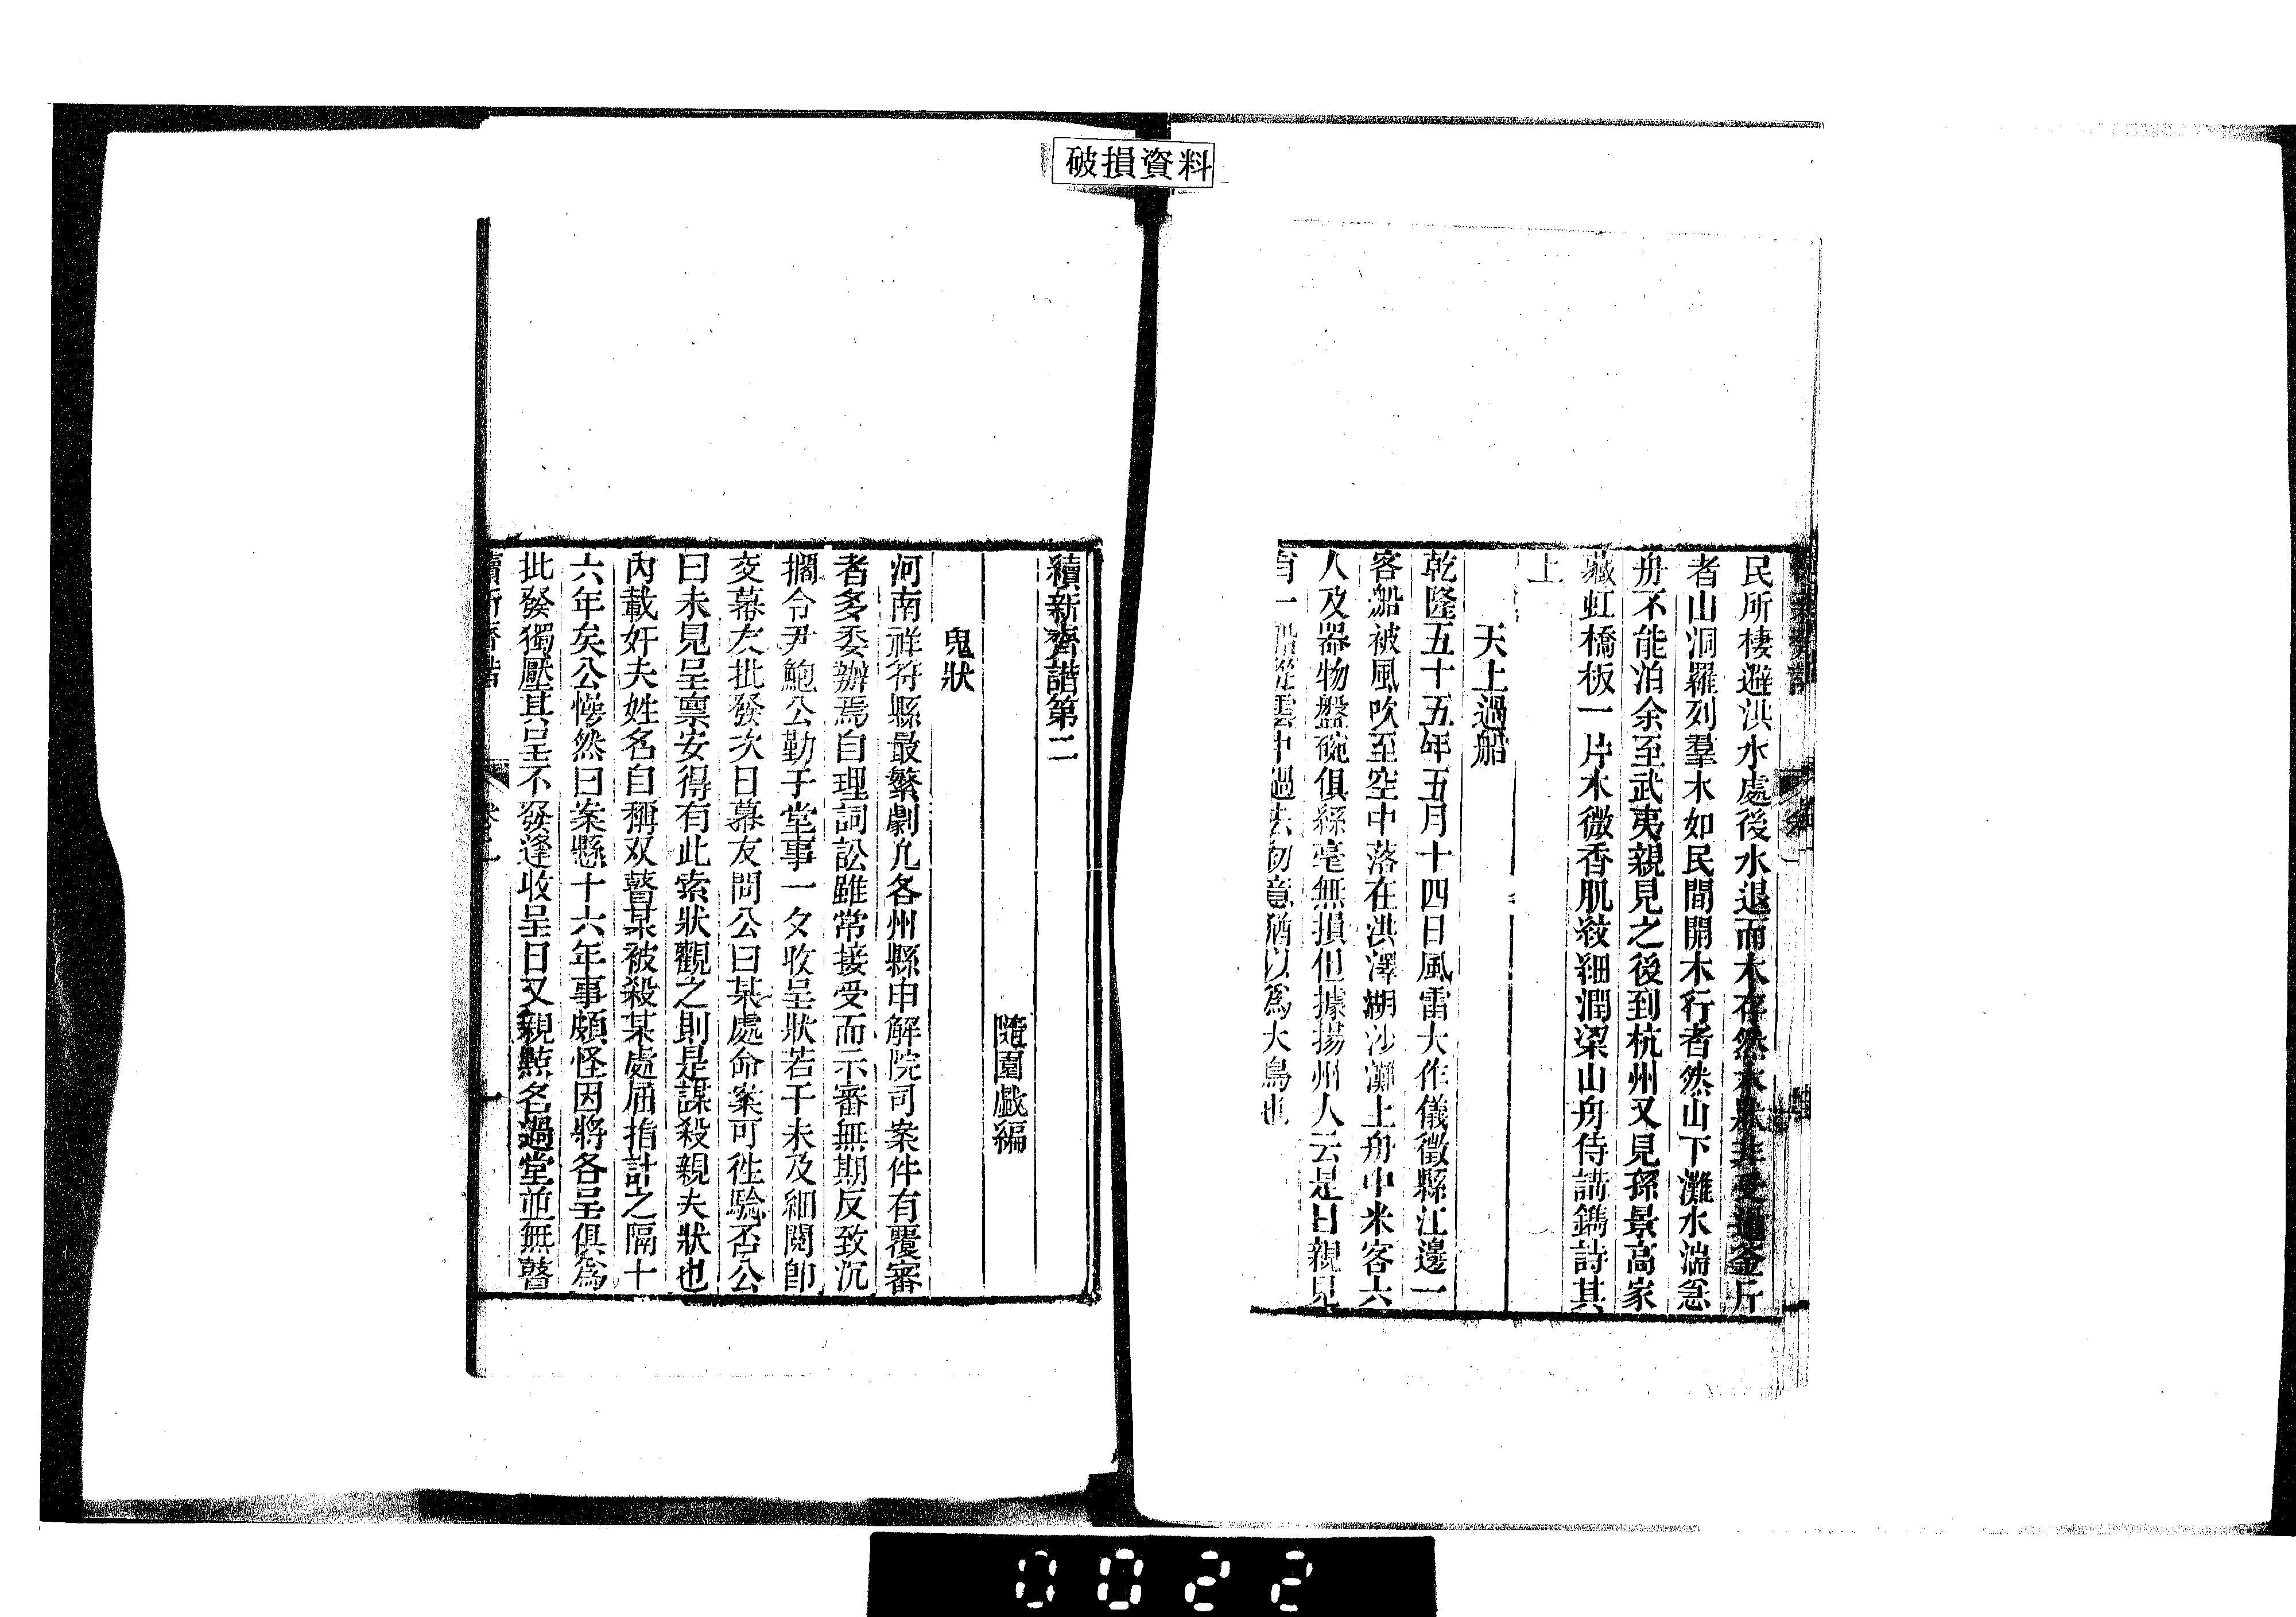 破損資料
民所棲避洪水處後水退而木存然木狀非受過釜斤
者山洞羅列羣木如民間開木行者然山下灘水湍急
舟不能泊余至武夷親見之後到杭州又見孫景高家
藏虹橋板一片木微香肌紋細潤梁山舟侍講鐫詩其
上
天上過船
乾隆五十五年五月十四日風雷大作儀徵縣江邊一
客船被風吹至空中落在洪澤湖沙灘上舟中米客六
人及器物盤碗俱絲毫無損但據揚州人云是日親見
有一船從雲中過去初意猶以爲大鳥也
續新齊諧第二
隨園戲編
鬼狀
河南祥符縣最繁劇凢各州縣申解院司案件有覆審
者多委辦焉自理詞訟雖常接受而示審無期反致沉
擱令尹鮑公勤于堂事一夕收呈狀若干未及細閱卽
交幕友批發次日幕友問公曰某處命案可徃驗否公
曰未見呈禀安得有此索狀觀之則是謀殺親夫狀也
內載奸夫姓名自稱双瞽某被殺某處屈指計之隔十
六年矣公慘然曰案懸十六年事頗怪因將各呈俱爲
批發獨壓其呈不發逢收呈日又親點名過堂並無瞽
續新齊諧
卷二
一
0022